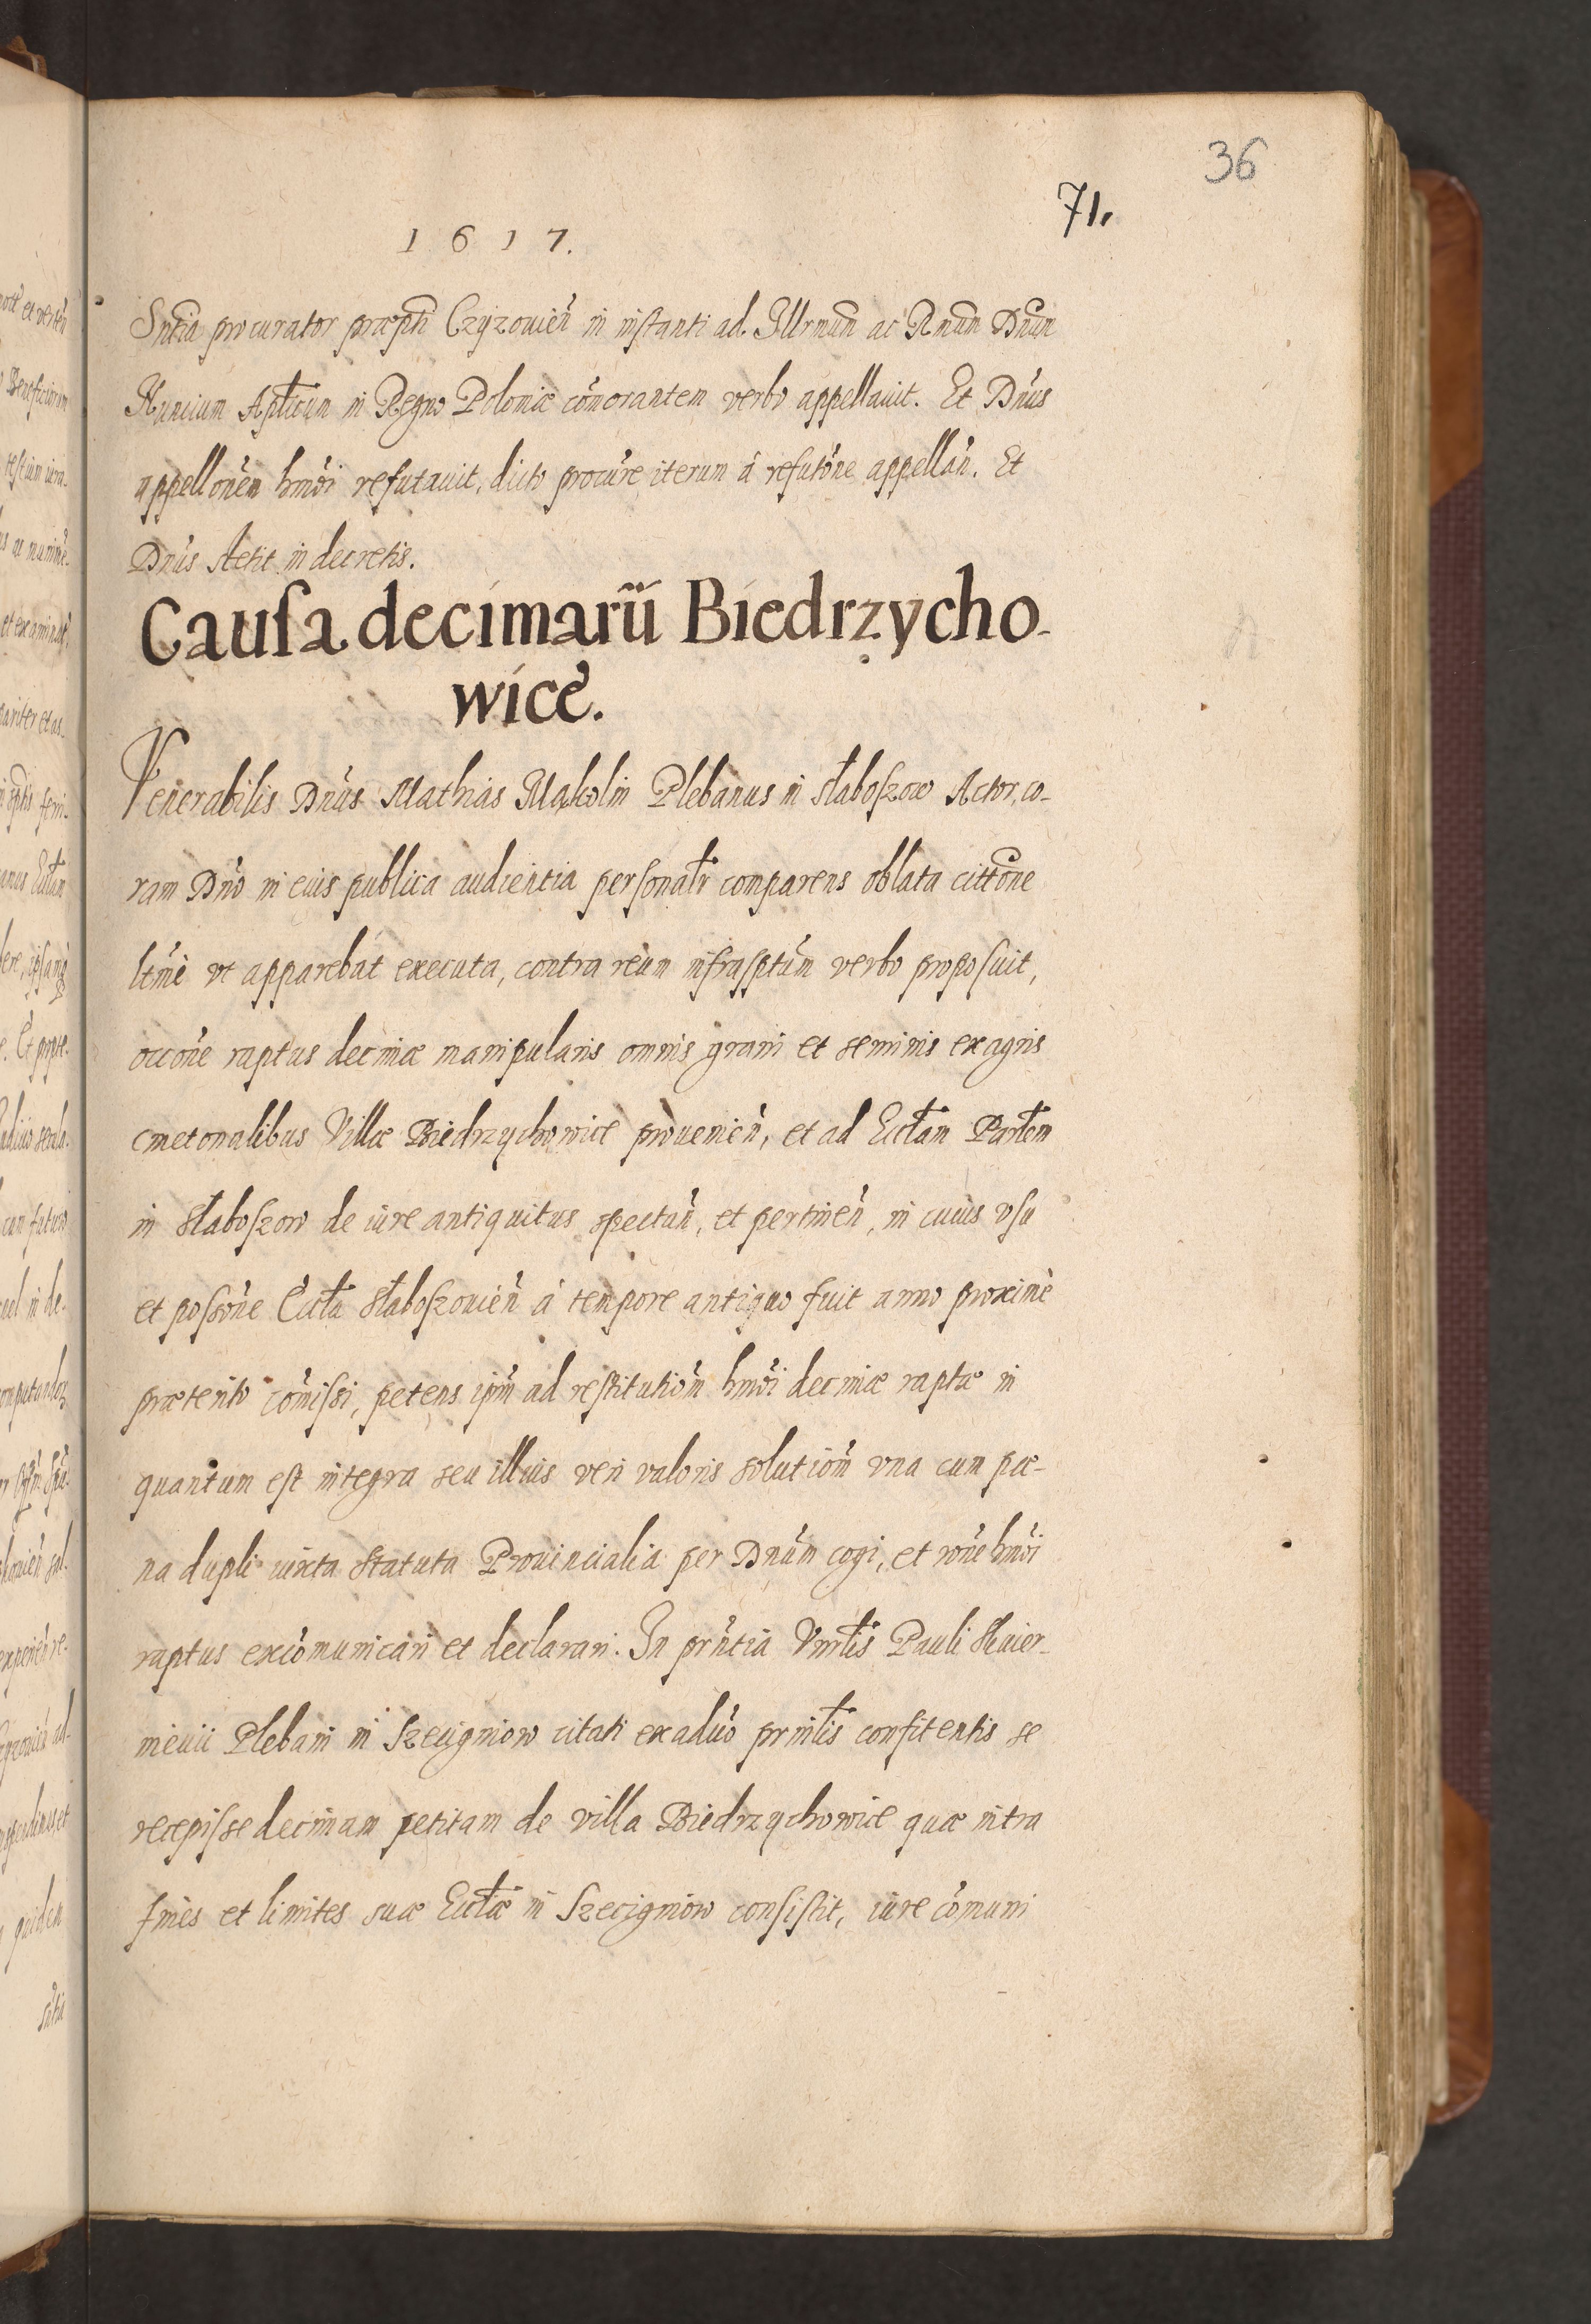 36
71.
1617.
Sntia procurator præpti Czyzouien in instanti ad Illrmum ac Rnum Dnum
Nuncium Aplicum in Regno Poloniæ comorantem verbo appellauit. Et Dnus
appellonem hmoi refutauit, dicto procure iterum à refutone appellan. Et
Dnus stetit in decretis.
Causa decimarũ Biedrzycho-
wice.
Venerabilis Dnus Mathias Makolin Plebanus in Słaboszow Actor, co-
ram Dno in eius publica audientia personalr comparens oblata cittone
ltme vt apparebat executa, contra reum infrasptum verbo proposuit,
occone raptus decimæ manipularis omnis grani et seminis ex agris
cmetonalibus Villæ Biedrzychowice prouenien, et ad Ecclam Parlem
in Słaboszow de iure antiquitus spectan, et pertinen, in cuius vsu
et possone Eccla Słaboszouien à tempore antiquo fuit anno proximè
præterito comissi, petens ipm ad restitutiom hmoi decimæ raptæ in
quantum est integra seu illius veri valoris solutiom vna cum pæ-
na dupli iuxta statuta Prouincialia per Dnum cogi, et rone hmoi
raptus excomunicari et declarari. In prntia Vnrlis Pauli Skier-
nieuii Plebani in Szecigniow citati ex aduo prnlis confitentis se
recepisse decimam petitam de villa Biedrzychowice quæ intra
fines et limites suæ Ecclæ in Szecigniow consistit, iure comuni